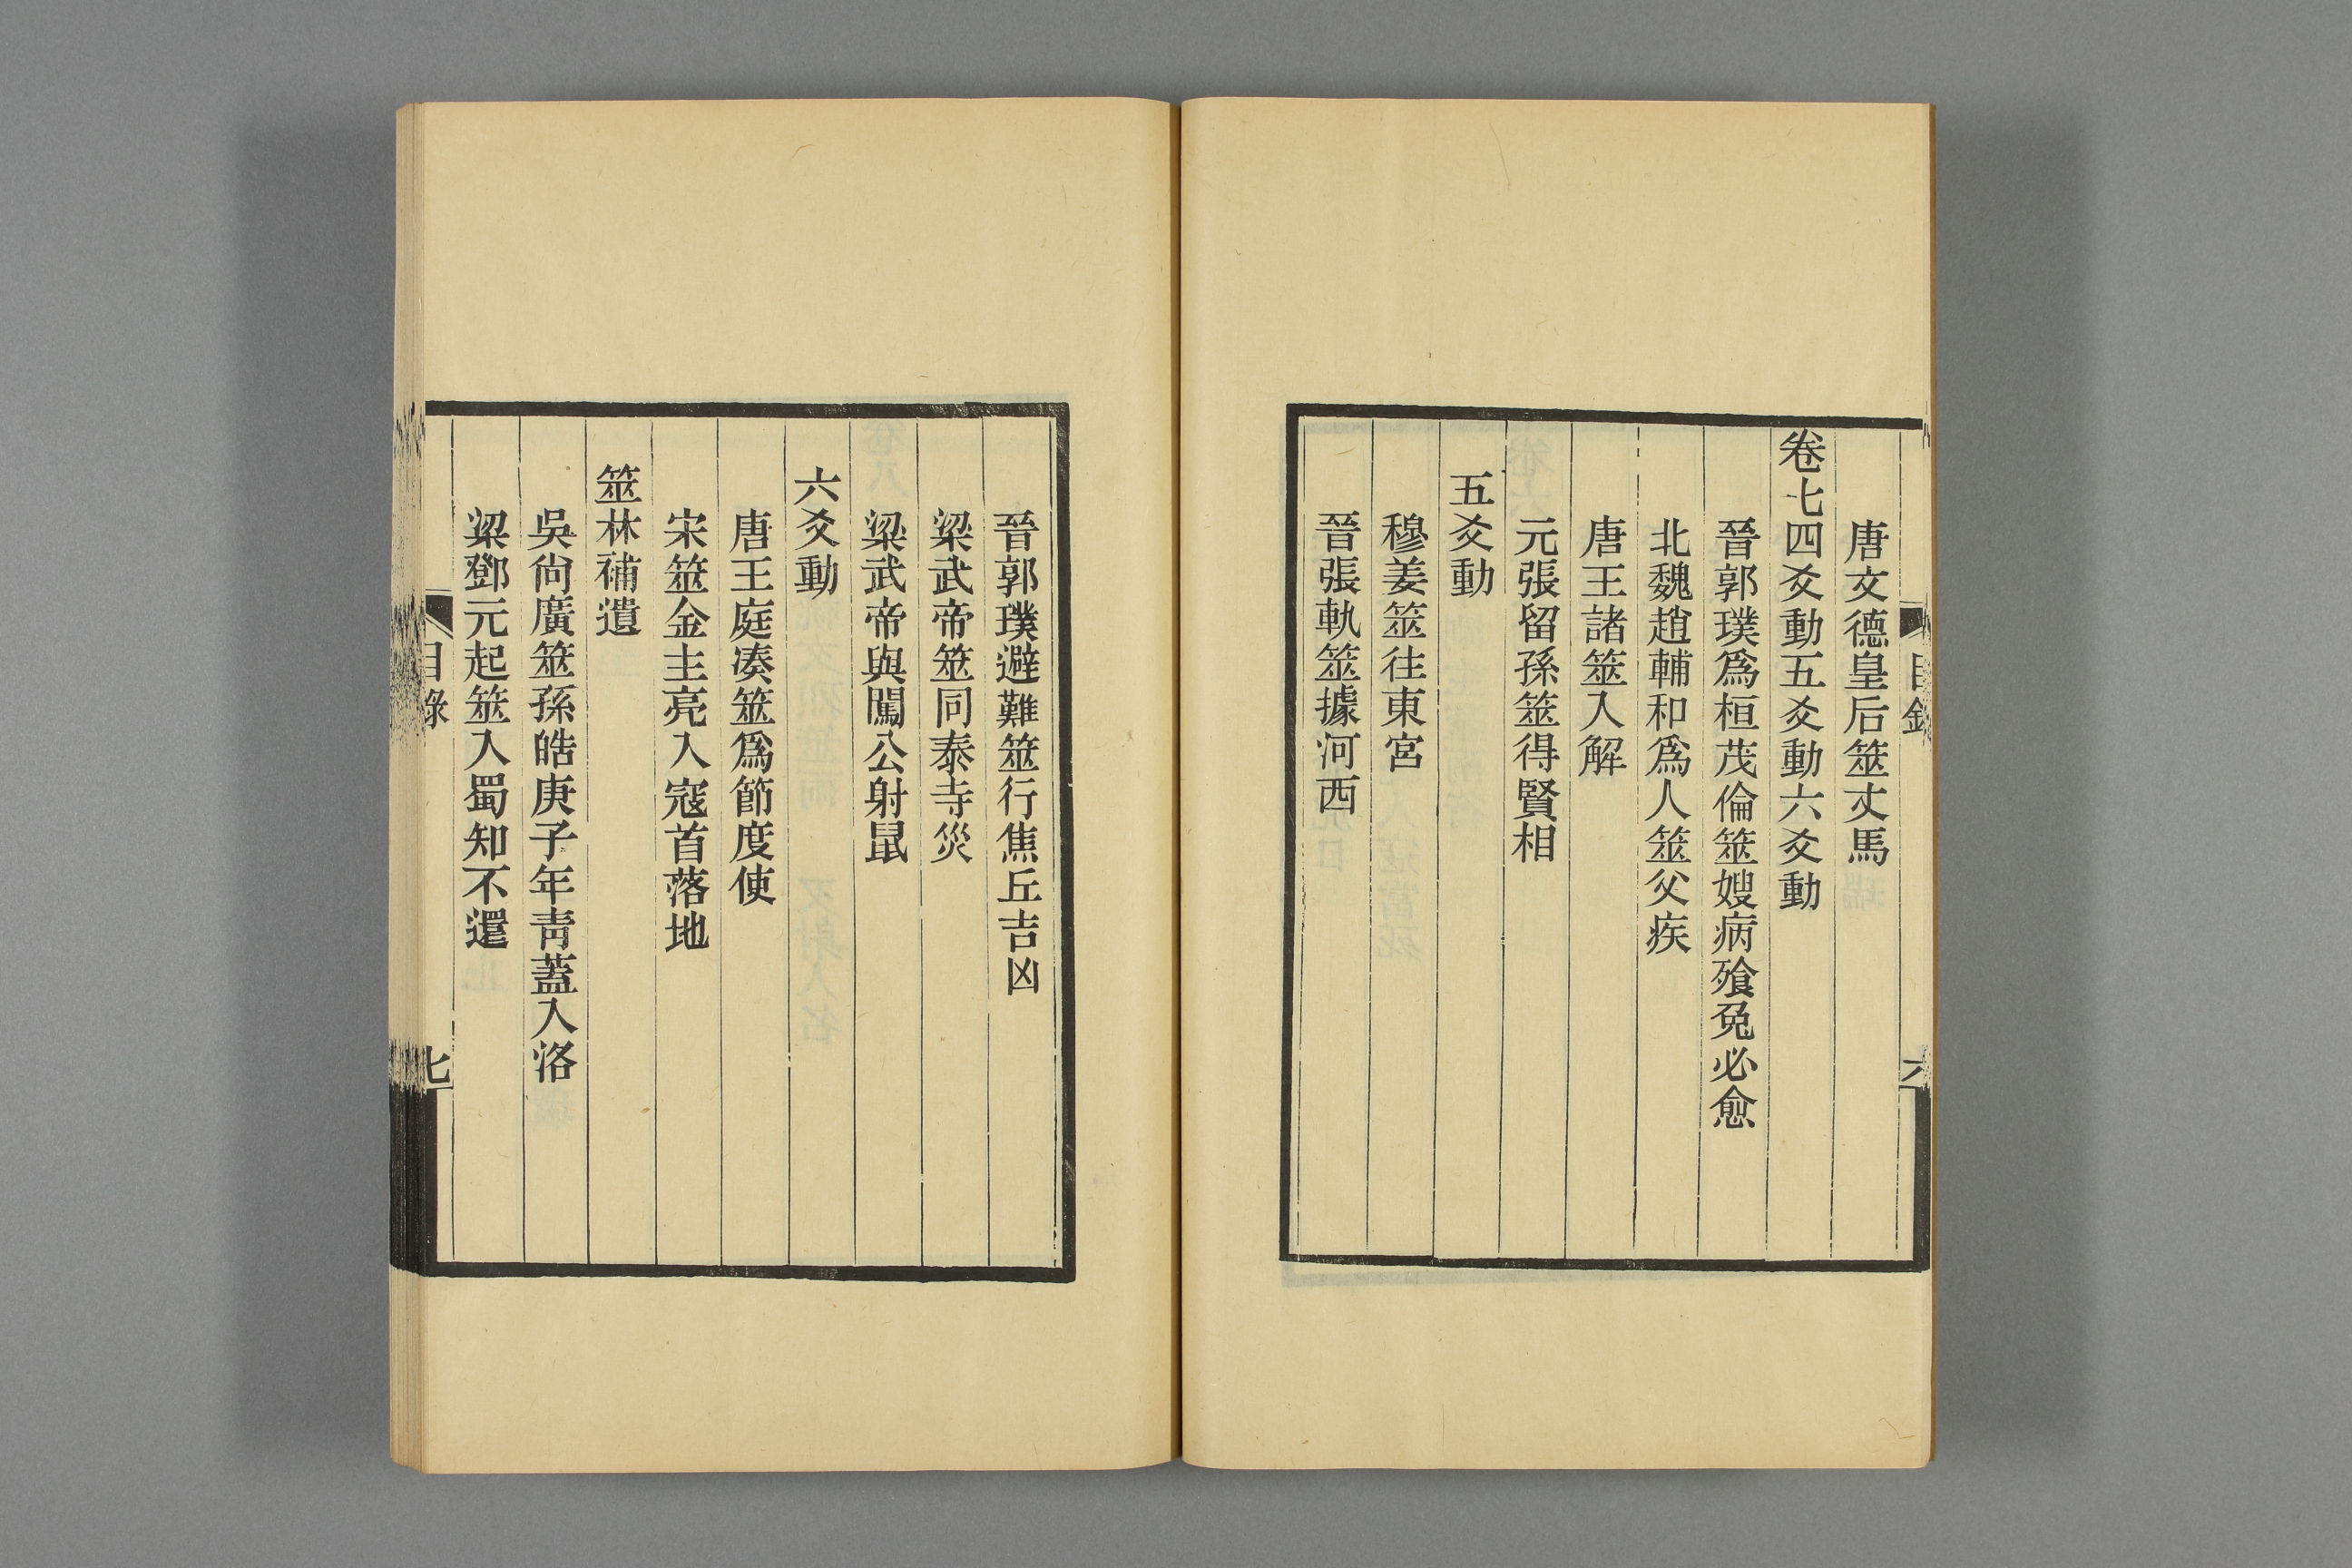 唐文德皇后筮丈馬
卷七四爻動五爻動六爻動
晉郭璞爲桓茂倫筮嫂病飱兔必愈
北魏趙輔和爲人筮父疾
唐王諸筮入解
元張留孫筮得賢相
五爻動
穆姜筮往東宮
晉張軌筮據河西
晉郭璞避難筮行焦丘吉凶
梁武帝筮同泰寺災
梁武帝與闖公射鼠
六爻動
唐王庭湊筮爲節度使
宋筮金主亮入寇首落地
筮林補遺
吳尙廣筮孫皓庚子年靑蓋入洛
梁鄧元起筮入蜀知不還
目錄
七